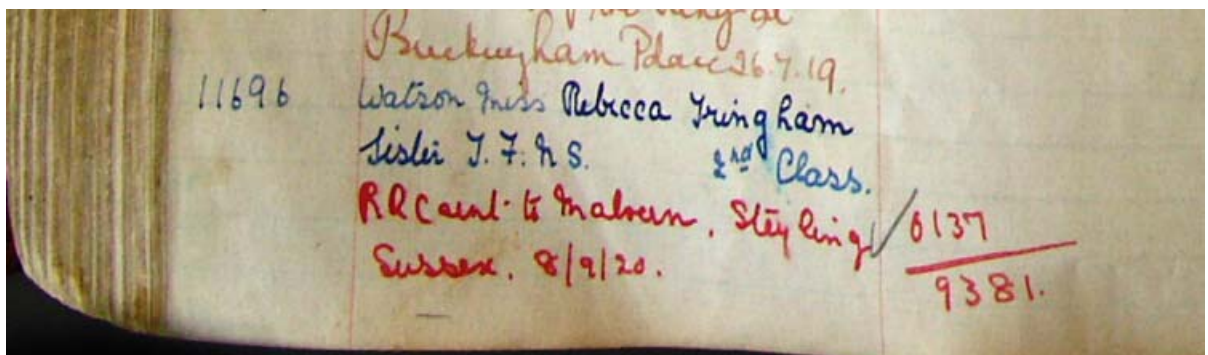 Buckingham Palace 26.7.19.
11696 Watson Miss Rebecca Tringham
Sister T.F.N.S. 2nd Class.
RRC sent to Malvern, Steyling
Sussex. 8/9/20.
0137
9381.